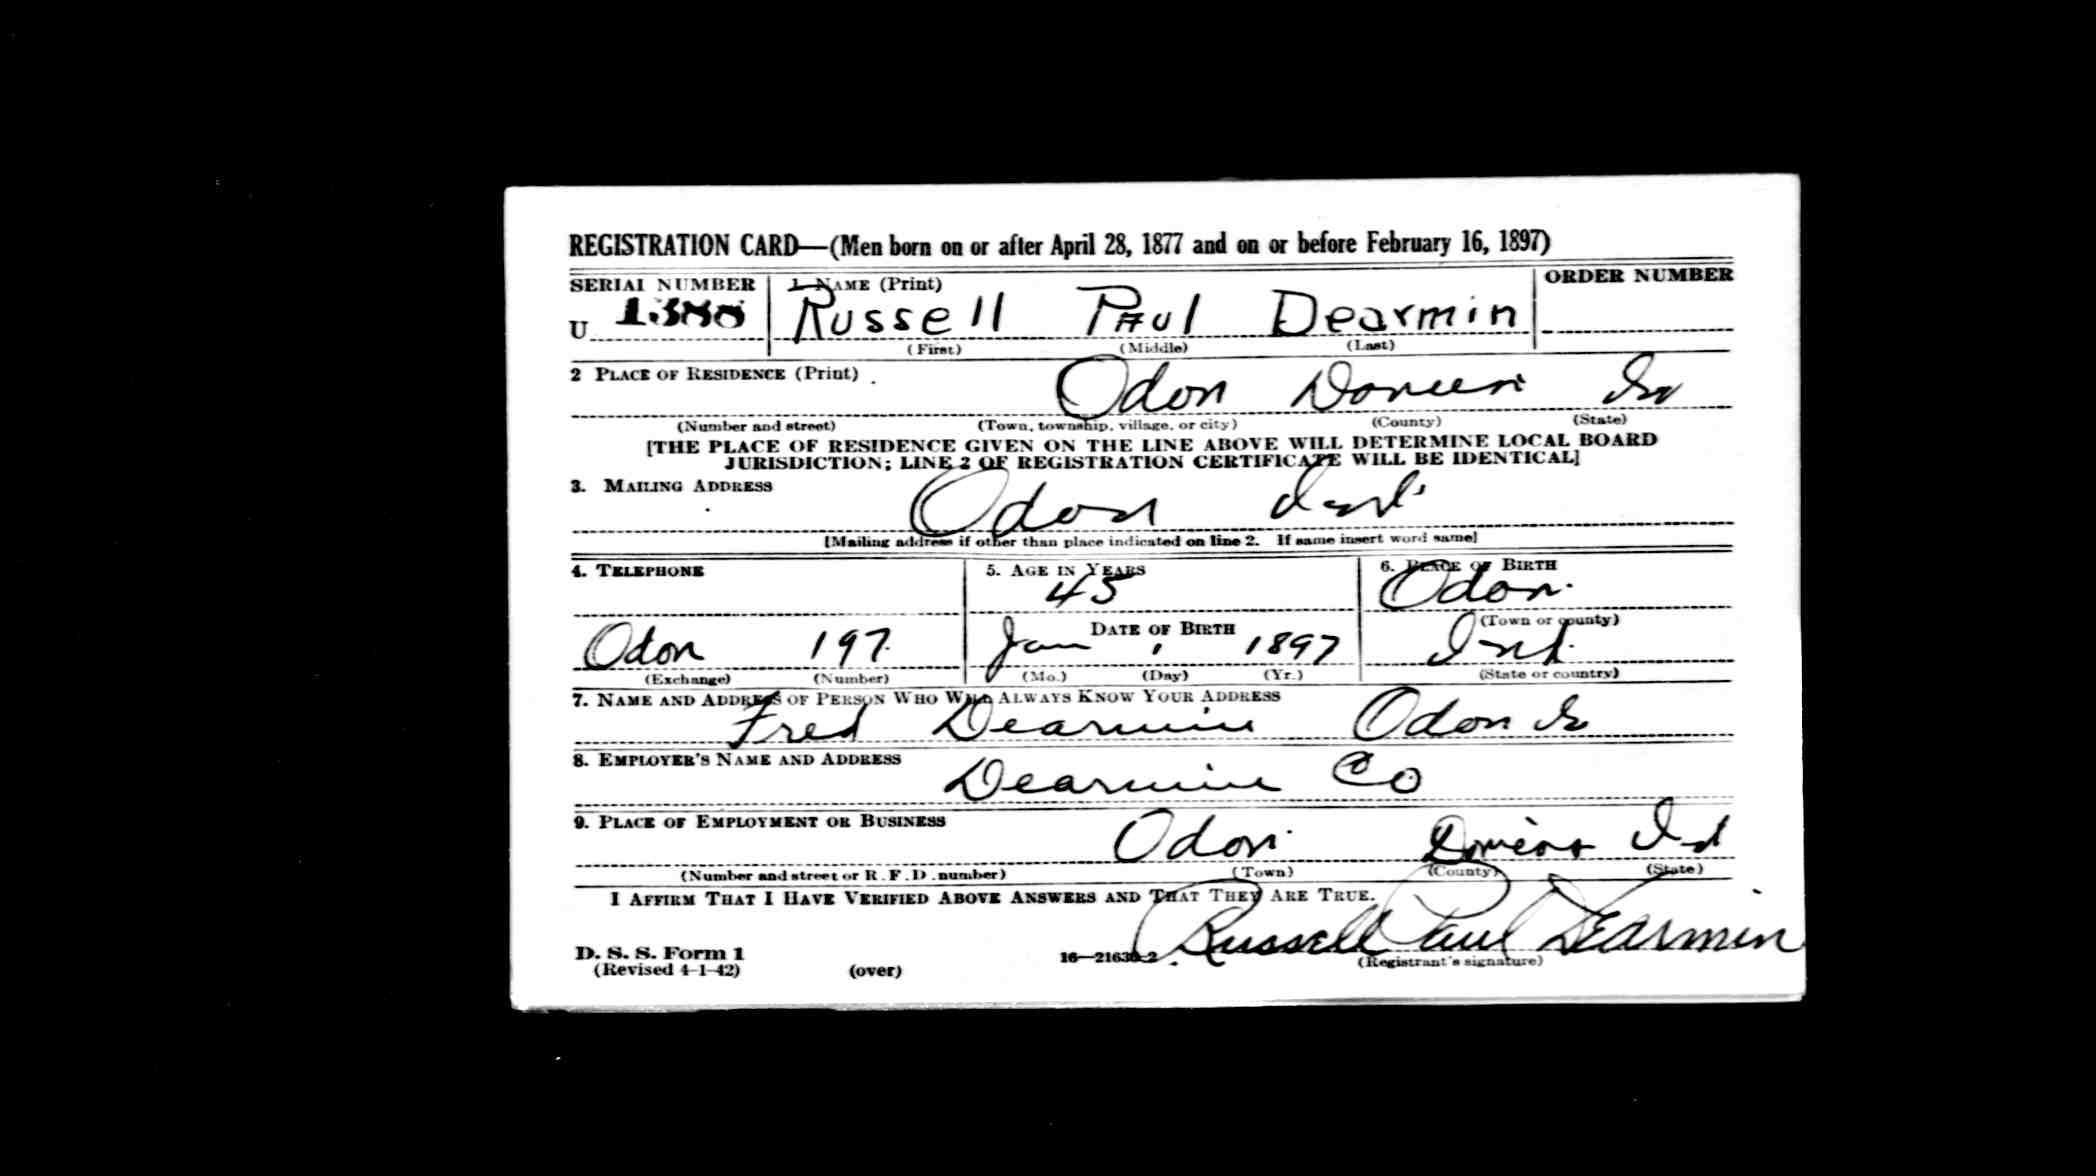 REGISTRATION CARD—(Men born on or after April 28, 1877 and on or before February 16, 1897)
SERIAL NUMBER 1. NAME (Print) ORDER NUMBER
U 1388 Russell Paul Dearmin
(First) (Middle) (Last)
2 PLACE OF RESIDENCE (Print)
Odon Ind
(Number and street) (Town, township, village, or city) (County) (State)
[THE PLACE OF RESIDENCE GIVEN ON THE LINE ABOVE WILL DETERMINE LOCAL BOARD
JURISDICTION; LINE 2 OF REGISTRATION CERTIFICATE WILL BE IDENTICAL]
3. MAILING ADDRESS
Odon Ind
[Mailing address if other than place indicated on line 2. If same insert word same]
4. TELEPHONE 5. AGE IN YEARS 6. PLACE OF BIRTH
45 Odon
DATE OF BIRTH (Town or county)
Odon 197 Jan 1 1897 Ind.
(Exchange) (Number) (Mo.) (Day) (Yr.) (State or country)
7. NAME AND ADDRESS OF PERSON WHO WILL ALWAYS KNOW YOUR ADDRESS
Fred Dearmin Odon
8. EMPLOYER'S NAME AND ADDRESS
Dearmin Co
9. PLACE OF EMPLOYMENT OR BUSINESS
Odon Ind
(Number and street or R. F. D. number) (Town) (County) (State)
I AFFIRM THAT I HAVE VERIFIED ABOVE ANSWERS AND THAT THEY ARE TRUE.
Russell Paul Dearmin
D. S. S. Form 1 16—21630-2 (Registrant's signature)
(Revised 4-1-42) (over)